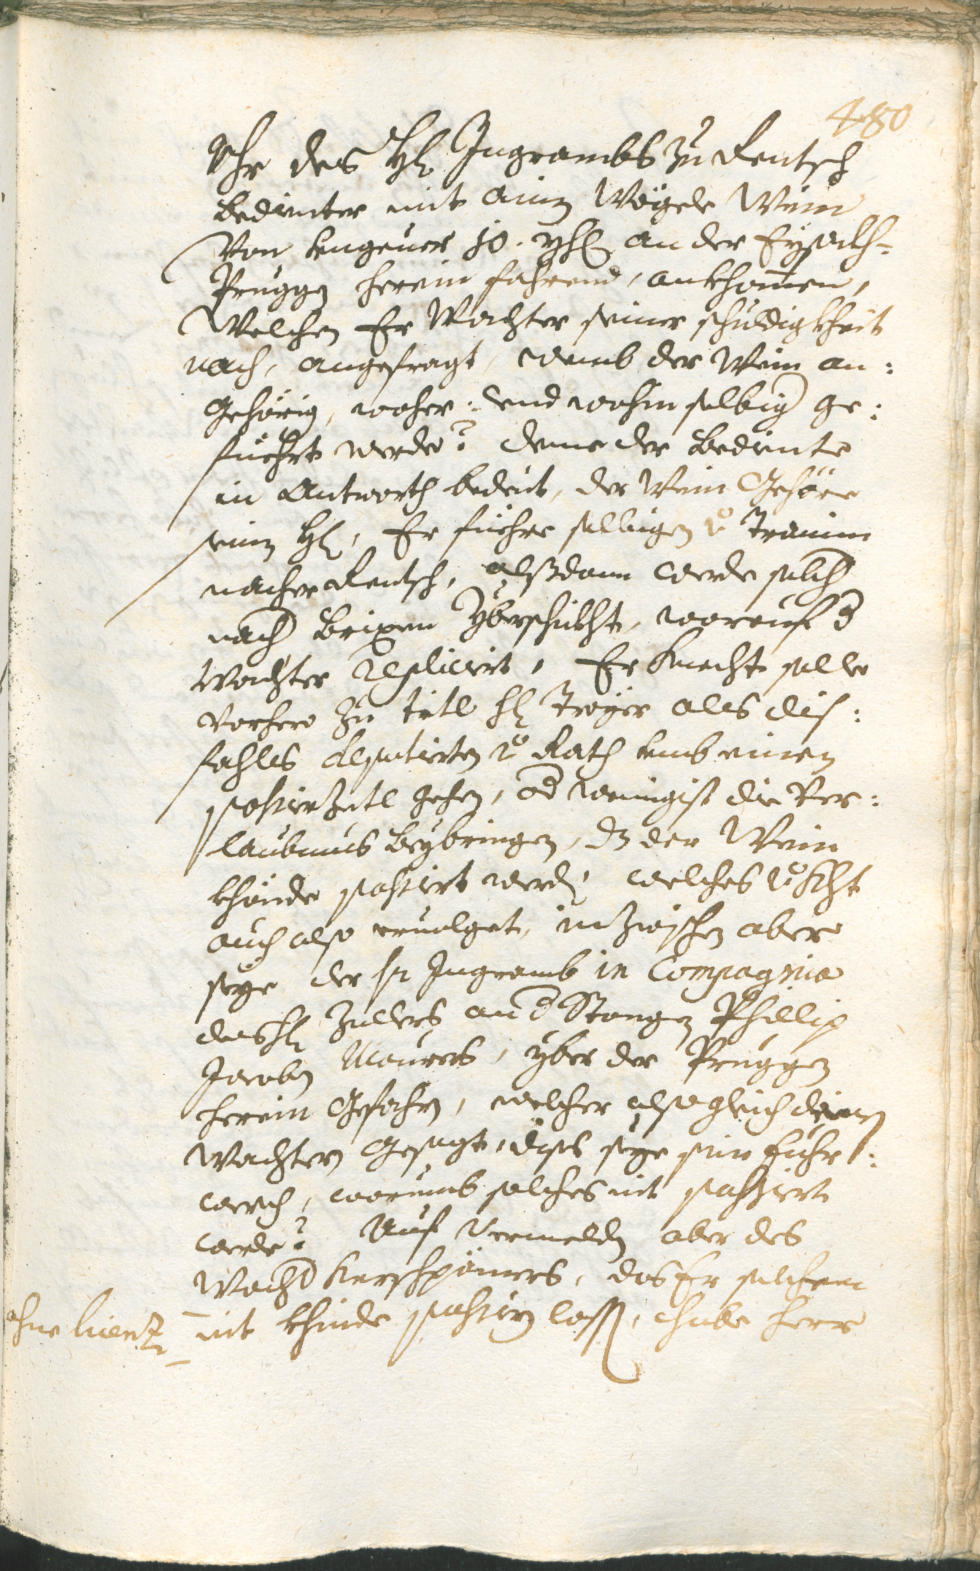 480
Uhr des H: Ingrambs zu Rentsch
bedienter mit ainem Wägele Wein
von ungeuer 10. yhrn an der Eysackh=
Pruggen herein fahrend, ankhommen,
Welchen Er Wachter seiner schuldigkheit
nach, angefragt, wemb der Wein an:
gehörig, woher: und wohin selbig ge:
fiehrt werde? deme der bediente
in Antworth bedeit, der Wein gehöre
seinem H:, Er fiehre selbigen von Tramin
nacher Rentsch, alßdann werde solch
nach Brixen yberschickht, worauf d
Wachter replicirt, Er Knecht solle
vorhero zu titl H: Troyer als diß:
fahls deputirten von Rath umb einen
passierzetl gehen, od wenigist die Er:
laubnus beybringen, dz der Wein
khönde passirt werden, welches
auch also ervolget, inzwischen aber
seye der H: Ingramb in Compagnia
des H: Zallers an d Stangen Phillip
Jacoben Maurers, yber der Pruggen
herein gefahrn, welcher alsogleich deme
Wachter gesagt, dises seye sein fuhr:
werch, warumb solches nit passirt
werde? Auf vermelden aber des
Wacht Kerschpamers, das Er solchen
ohne licenz nit khinde passirn lassen, habe Herr